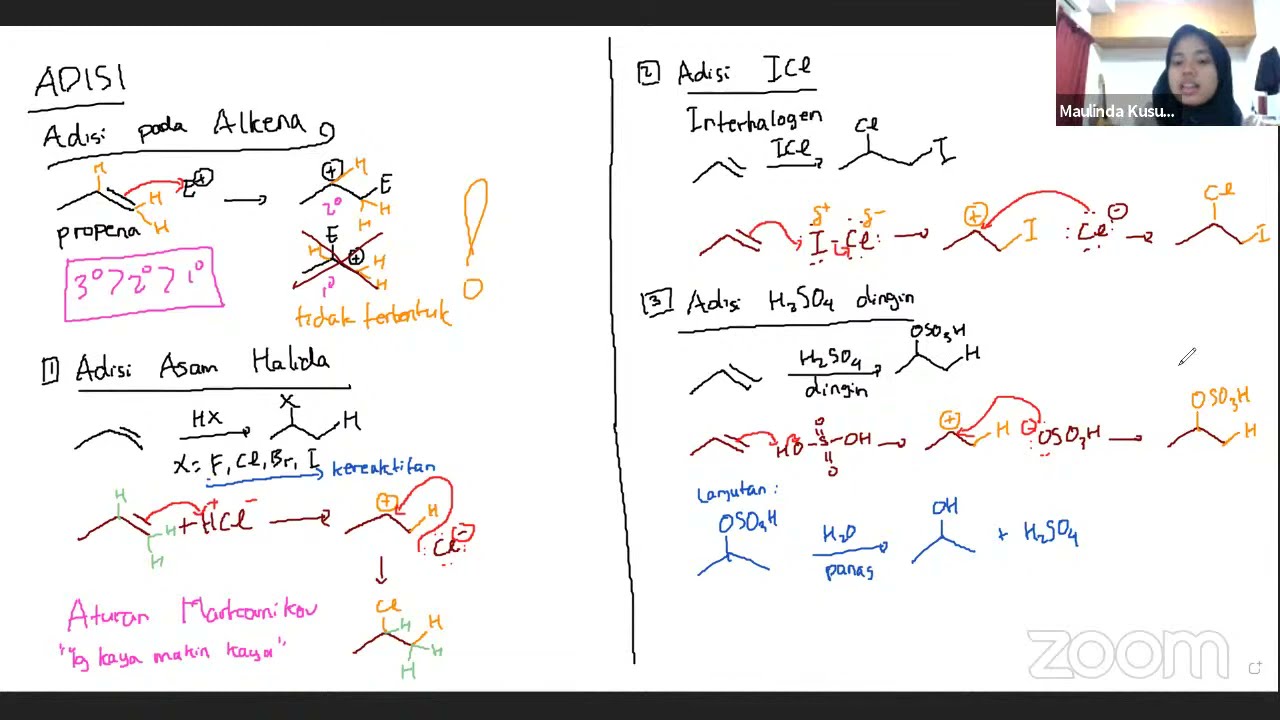 ADISI
Adisi pada Alkena
H
E⊕
H
H
propena
⊕
H
E
2°
H
H
3°>2°>1°
E
H
⊕
H
H
1°
tidak terbentuk
!
1 Adisi Asam Halida
HX
X
H
X = F, Cl, Br, I
kereaktifan
H
H
H
+ HCl
+ -
⊕
H
Cl⊖
Cl
H
H
H
H
Aturan Markovnikov
"yg kaya makin kaya"
2 Adisi ICl
Interhalogen
ICl
Cl
I
δ+ δ-
I-Cl
⊕
I
Cl⊖
Cl
I
3 Adisi H2SO4 dingin
H2SO4
dingin
OSO3H
H
HO-S-OH
O
O
⊕
H
⊖OSO3H
OSO3H
H
Lanjutan :
OSO3H
H2O
panas
OH
+ H2SO4
Maulinda Kusu...
zoom